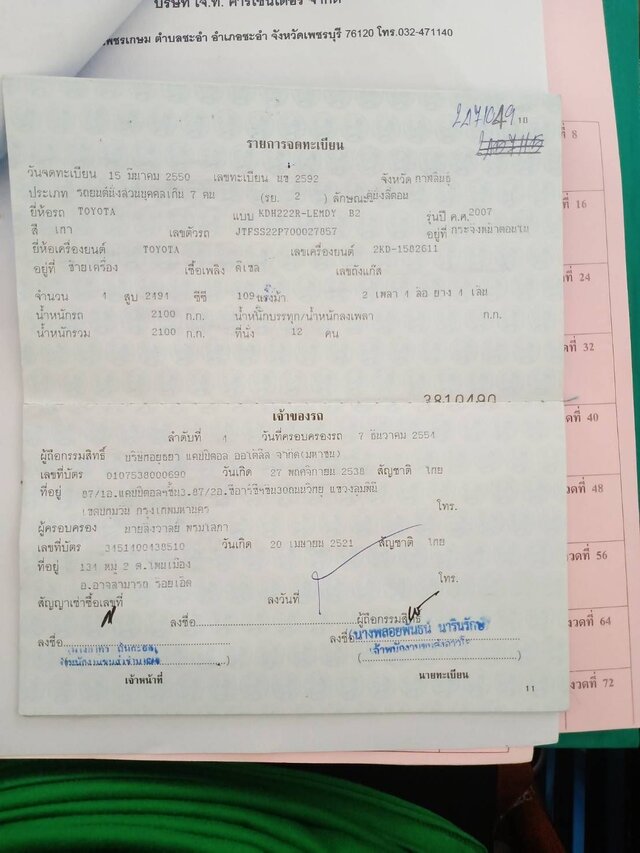 บริษัท เจ.ที. คาร์เซ็นเตอร์ จำกัด
เพชรเกษม ตำบลชะอำ อำเภอชะอำ จังหวัดเพชรบุรี 76120 โทร.032-471140
10
รายการจดทะเบียน
วันจดทะเบียน 15 มีนาคม 2550 เลขทะเบียน นข 2592 จังหวัด กาฬสินธุ์
ประเภท รถยนต์นั่งส่วนบุคคลเกิน 7 คน (รย. 2 ) ลักษณะ
ยี่ห้อรถ TOYOTA แบบ KDH222R-LEMDY B2 รุ่นปี ค.ศ.2007
สี เทา เลขตัวรถ JTFSS22P700027857 อยู่ที่
ยี่ห้อเครื่องยนต์ TOYOTA เลขเครื่องยนต์ 2KD-1582611
อยู่ที่ ซ้ายเครื่อง เชื้อเพลิง ดีเซล เลขถังแก๊ส
จำนวน 4 สูบ 2494 ซีซี 109 แรงม้า 2 เพลา 4 ล้อ ยาง 4 เส้น
น้ำหนักรถ 2100 ก.ก. น้ำหนักบรรทุก/น้ำหนักลงเพลา ก.ก.
น้ำหนักรวม 2100 ก.ก. ที่นั่ง 12 คน
3810490
เจ้าของรถ
ลำดับที่ 4 วันที่ครอบครองรถ 7 ธันวาคม 2554
ผู้ถือกรรมสิทธิ์ บริษัทอยุธยา แคปปิตอล ออโต้ลีส จำกัด(มหาชน)
เลขที่บัตร 0107538000690 วันเกิด 27 พฤศจิกายน 2538 สัญชาติ ไทย
ที่อยู่ 87/1อ.แคปปิตอลฯชั้น3.87/2อ.ซีอาร์ซีฯชั้น30ถนนวิทยุ แขวงลุมพินี
เขตปทุมวัน กรุงเทพมหานคร โทร.
ผู้ครอบครอง
เลขที่บัตร 3451400438510 วันเกิด 20 เมษายน 2521 สัญชาติ ไทย
ที่อยู่ 134 หมู่ 2
อ.อาจสามารถ ร้อยเอ็ด โทร.
สัญญาเช่าซื้อเลขที่ ลงวันที่
ลงชื่อ ผู้ถือกรรมสิทธิ์
ลงชื่อ ลงชื่อ (นางพลอยพันธน์ นารินรักษ์
เจ้าพนักงานขนส่ง
เจ้าหน้าที่ นายทะเบียน
11
ที่ 8
ที่ 16
ที่ 24
ดที่ 32
ที่ 40
ดที่ 48
วดที่ 56
งวดที่ 64
งวดที่ 72